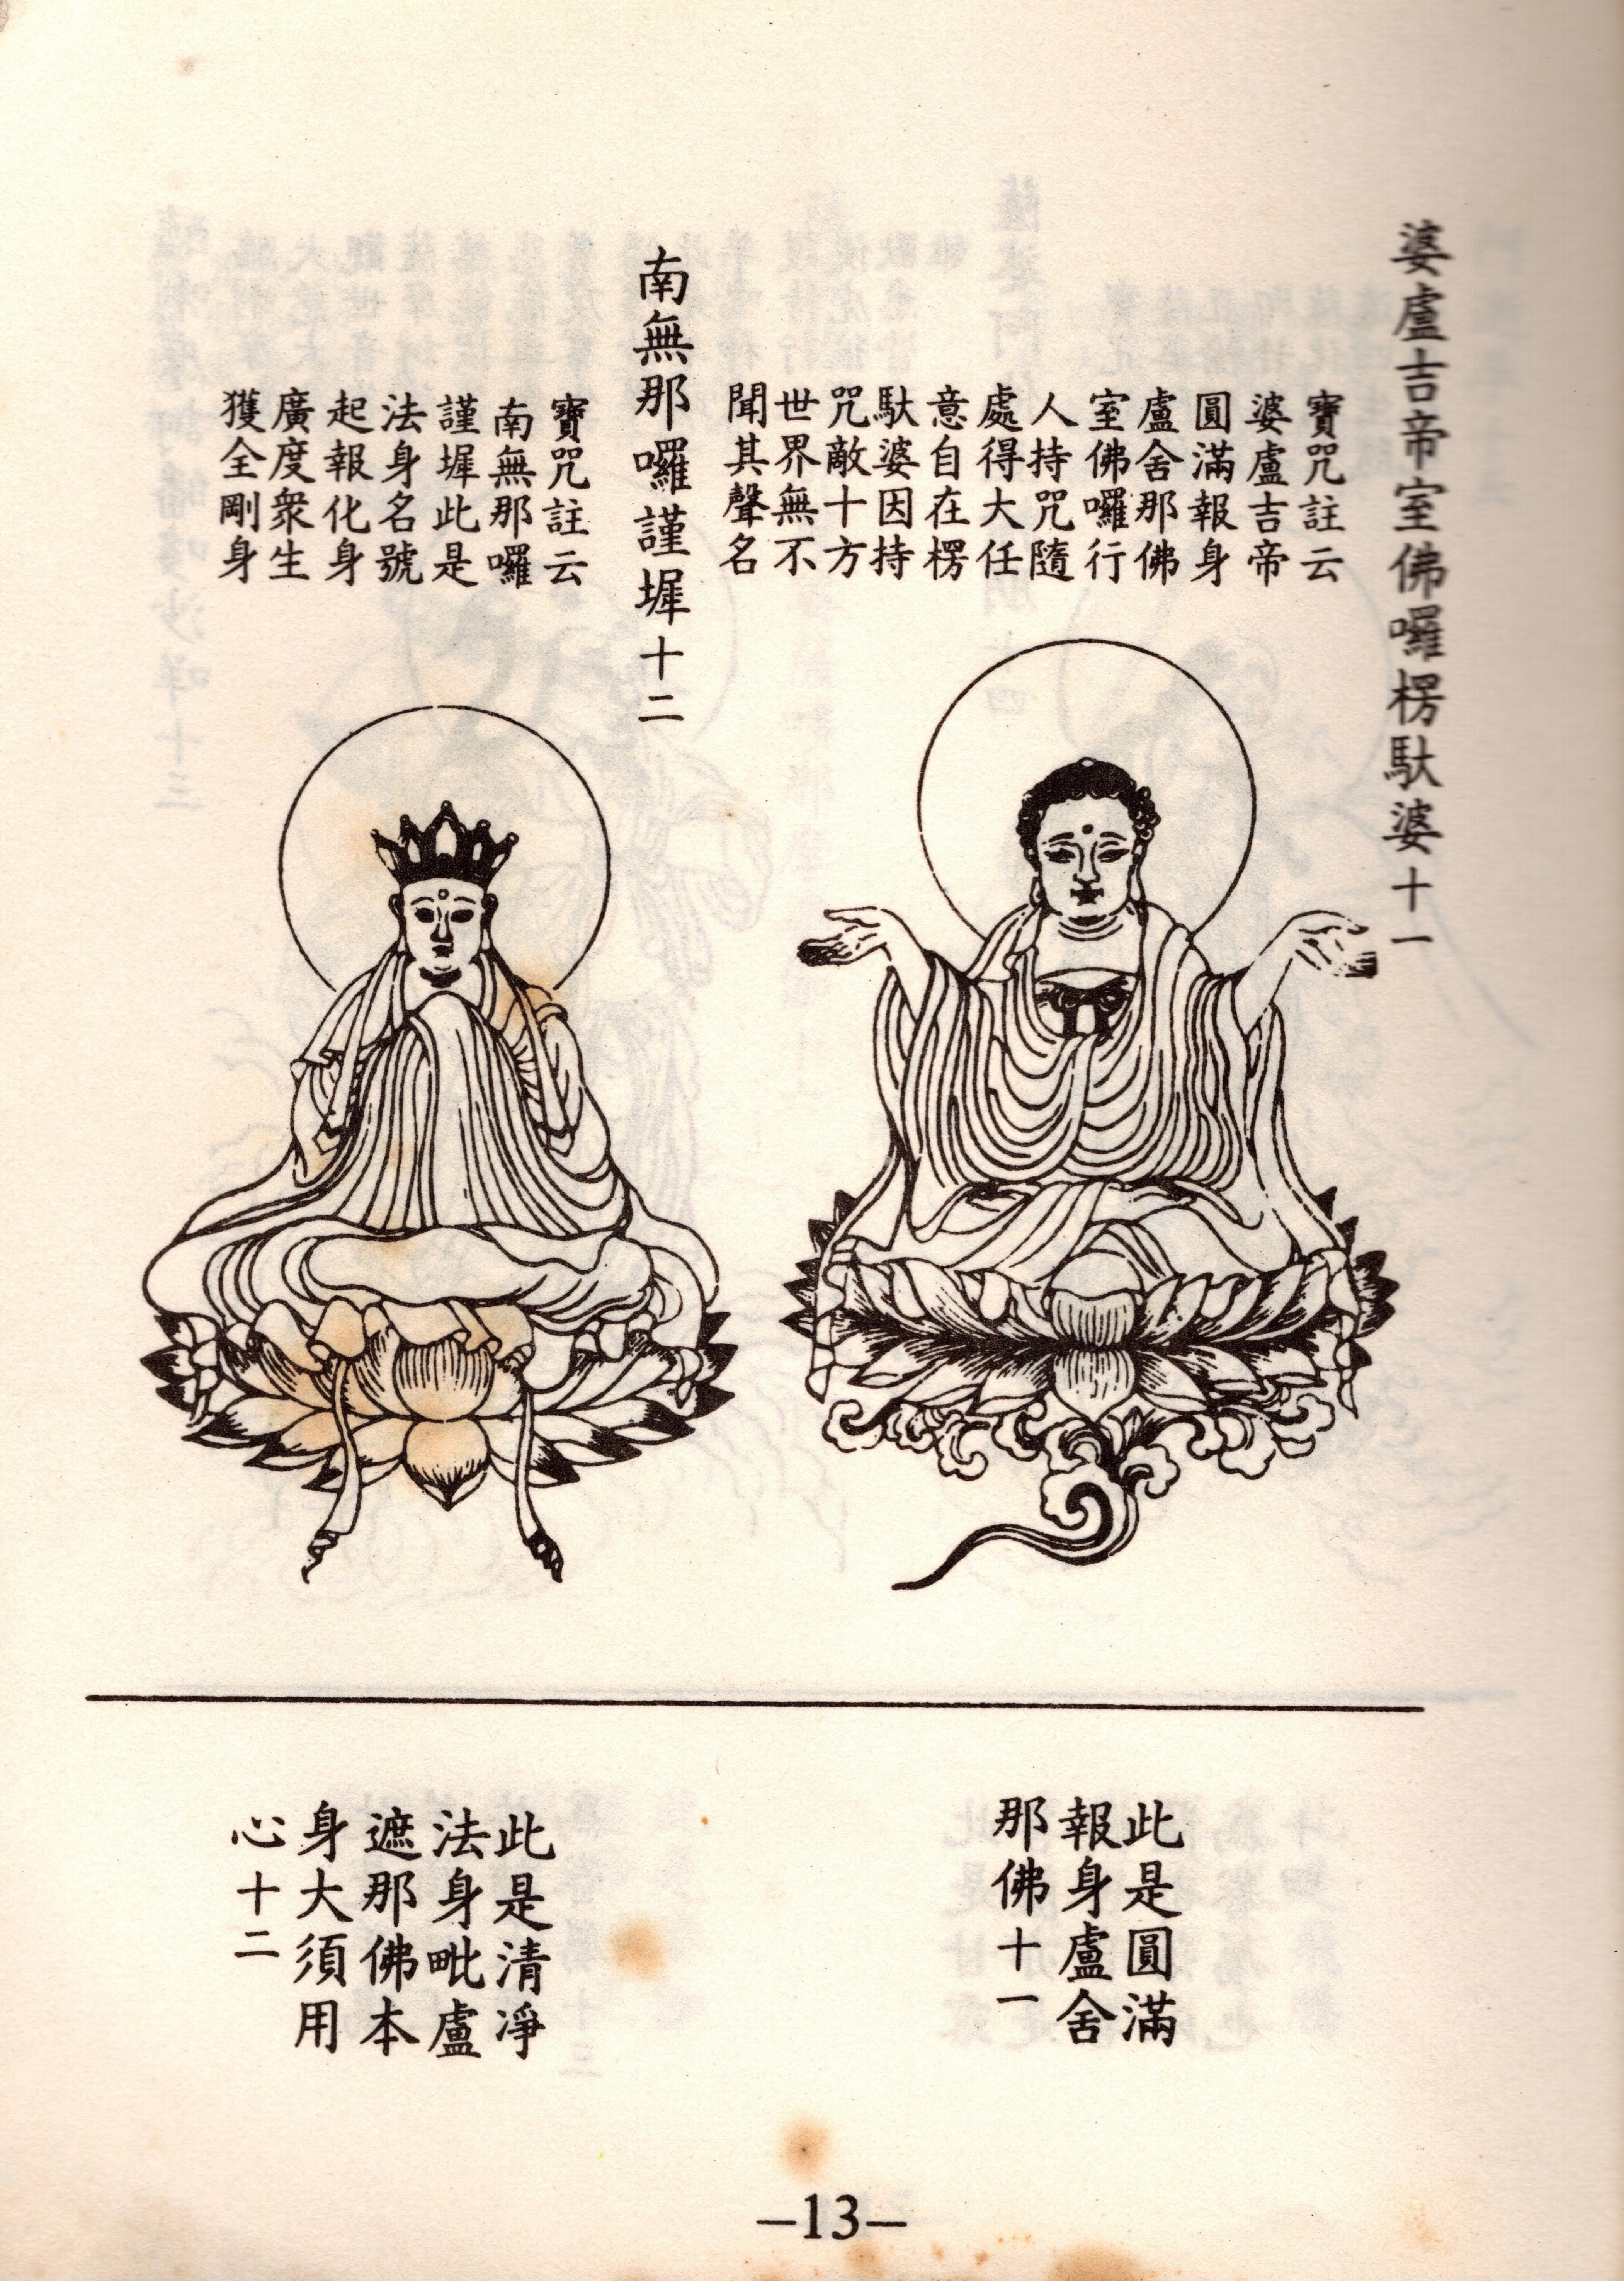 婆盧吉帝室佛囉楞馱婆十一
寶咒註云
婆盧吉帝
圓滿報身
盧舍那佛
室佛囉行
人持咒隨
處得大任
意自在楞
馱婆因持
咒敵十方
世界無不
聞其聲名
南無那囉謹墀十二
寶咒註云
南無那囉
謹墀此是
法身名號
起報化身
廣度衆生
獲全剛身
此是圓滿
報身盧舍
那佛十一
此是清淨
法身毗盧
遮那佛本
身大須用
心十二
—13—